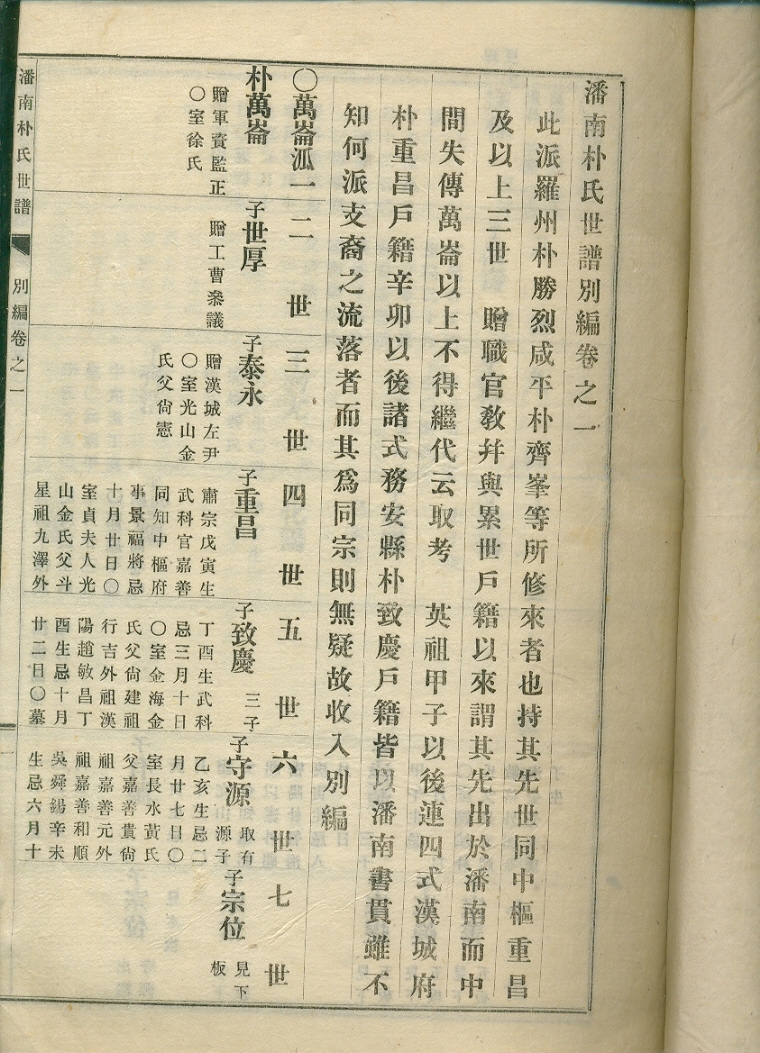 潘南朴氏世譜別編卷之一
此派羅州朴勝烈咸平朴齊峯等所修來者也持其先世同中樞重昌
及以上三世　贈職官敎幷與累世戶籍以來謂其先出於潘南而中
間失傳萬崙以上不得繼代云取考　英祖甲子以後連四式漢城府
朴重昌戶籍辛卯以後諸式務安縣朴致慶戶籍皆以潘南書貫雖不
知何派支裔之流落者而其爲同宗則無疑故收入別編
〇萬崙派一
朴萬崙
贈軍資監正
〇室徐氏
二世
子世厚
贈工曹叅議
三世
子泰永
贈漢城左尹
〇室光山金
氏父尙憲
四世
子重昌
肅宗戊寅生
武科官嘉善
同知中樞府
事景福將忌
十月廿日〇
室貞夫人光
山金氏父斗
星祖九澤外
五世
子致慶　三子
丁酉生武科
忌三月十日
〇室金海金
氏父尙建祖
行吉外祖漢
陽趙敏昌丁
酉生忌十月
廿二日〇墓
六世
子守源　取有源子
乙亥生忌二
月廿七日〇
室長水黃氏
父嘉善貴尙
祖嘉善元外
祖嘉善和順
吳舜錫辛未
生忌六月十
七世
子宗位　見下板
潘南朴氏世譜　別編卷之一
一